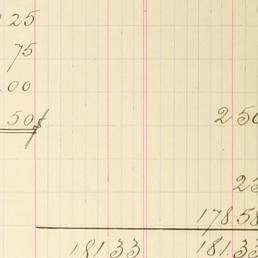 25
75
00
50
250
25
178.58
181.33 181.33